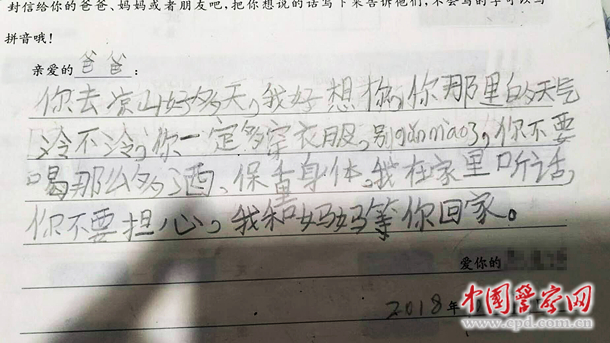 封信给你的爸爸、妈妈或者朋友吧，把你想说的话写下来告诉他们，不会写的字可以写
拼音哦！
亲爱的爸爸：
你去凉山好多天，我好想你，你那里的天气
冷不冷，你一定多穿衣服，别gǎnmiao3，你不要
喝那么多酒，保重身体，我在家里听话，
你不要担心，我和妈妈等你回家。
爱你的
2018年
中国警察网
www.cpd.com.cn